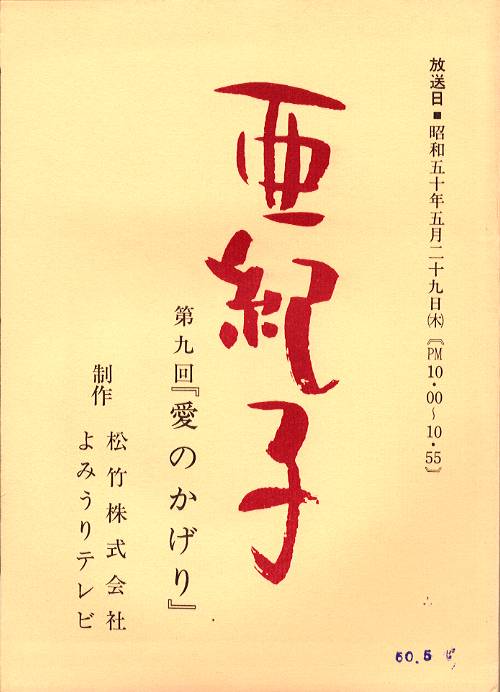 放送日■昭和五十年五月二十九日㈭〔PM10・00～10・55〕
亜紀子
第九回『愛のかげり』
制作
松竹株式会社
よみうりテレビ
50.5